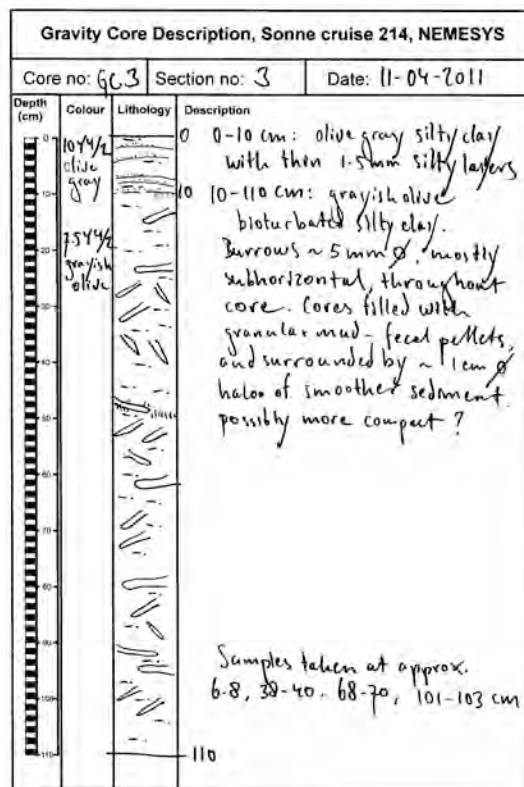 Gravity Core Description, Sonne cruise 214, NEMESYS
Core no: GC3 Section no: 3 Date: 11-04-2011
Depth (cm) Colour Lithology Description
0
10
20
30
40
50
60
70
80
90
100
110
10Y4/2
olive
gray
7.5Y4/2
grayish
olive
0
10
110
0-10 cm: olive gray silty clay
with thin 1-5mm silty layers
10-110 cm: grayish olive
bioturbated silty clay.
Burrows ~5mm Ø, mostly
subhorizontal, throughout
core. Cores filled with
granular mud - fecal pellets,
and surrounded by ~1cm Ø
halo of smoother sediment
possibly more compact?
Samples taken at approx.
6-8, 38-40, 68-70, 101-103 cm